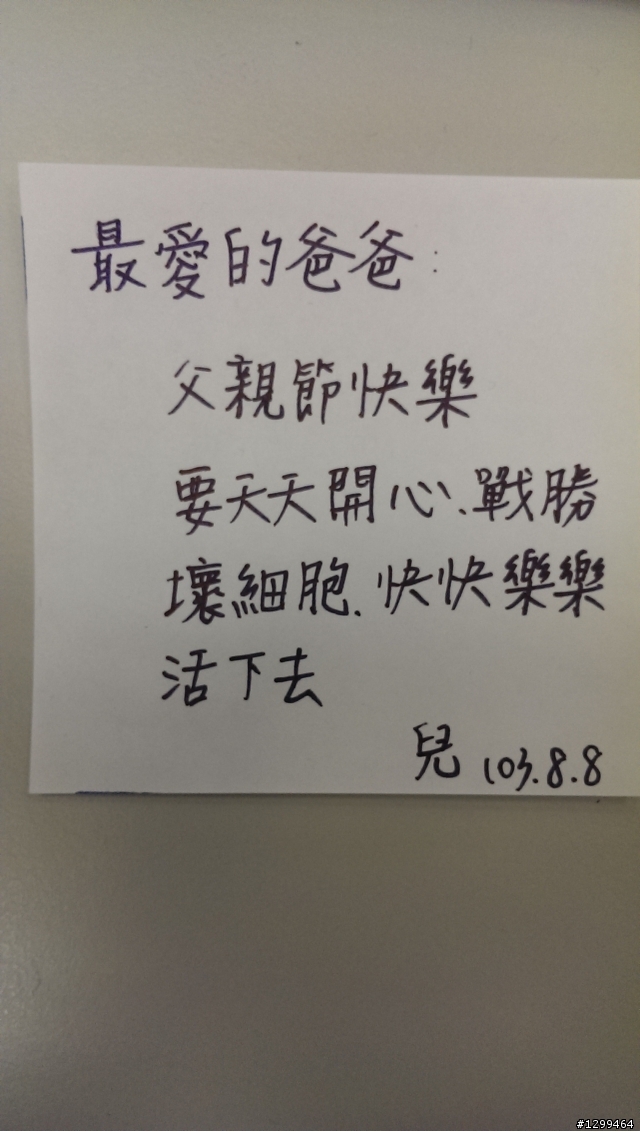 最愛的爸爸:
父親節快樂
要天天開心、戰勝
壞細胞、快快樂樂
活下去
兒 103.8.8
#1299464